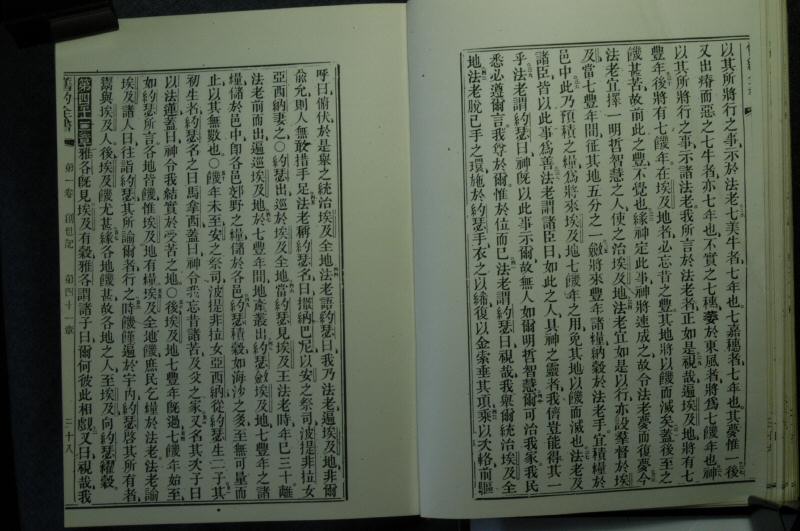 以其所將行之事示於法老七美牛者七年也七嘉穗者七年也其夢惟一後
又出瘠而惡之七牛者亦七年也不實之七穗萎於東風者將爲七饑年也神
以其所將行之事示諸法老我所言於法老者正如是視哉遍埃及地將有七
豐年後將有七饑年在埃及地者必忘昔之豐其地將以饑而滅矣蓋後至之
饑甚苦故前此之豐不覺也緣神定此事神將速成之故令法老夢而復夢今
法老宜擇一明哲智慧之人使之治埃及地法老宜如是以行亦設羣督於埃
及當七豐年間征其地五分之一斂將來豐年諸糧納穀於法老手宜積糧於
邑中此乃預積之糧爲將來埃及地七饑年之用免其地以饑而滅也法老及
諸臣皆以此事爲善法老謂諸臣曰如此之人具神之靈者我儕豈能得其一
乎法老謂約瑟曰神既以此事示爾故無人如爾明哲智慧爾可治我家我民
悉必遵爾言我尊於爾惟於位而已法老謂約瑟曰視哉我舉爾統治埃及全
地法老脫己手之環施於約瑟手衣之以絺復以金索垂其項乘以次輅前驅
呼曰俯伏於是舉之統治埃及全地法老語約瑟曰我乃法老遍埃及地非爾
兪允則人無敢措手足法老稱約瑟名曰撒納巴尼以安之祭司波提非拉女
亞西納妻之○約瑟出巡於埃及全地當約瑟見埃及王法老時年已三十離
法老前而出遍巡埃及地於七豐年間地產叢出約瑟斂埃及地七豐年之諸
糧儲於邑中卽各邑郊野之糧儲於各邑約瑟積穀如海沙之多至無可量而
止以其無數也○饑年未至安之祭司波提非拉女亞西納從約瑟生二子其
初生者約瑟名之曰馬拿西蓋曰神令我忘昔諸苦及父之家又名其次子曰
以法蓮蓋曰神令我結實於受苦之地○後埃及地七豐年既過七饑年始至
如約瑟所言各地皆饑惟埃及地有糧埃及全地饑庶民乞糧於法老法老諭
埃及諸人曰往詣約瑟其所諭爾者行之時饑徧於宇內約瑟啓其所有者
鬻與埃及人後埃及饑尤甚緣各地饑甚故各地之人至埃及向約瑟糴穀
第四十二章雅各既見埃及有穀雅各謂諸子曰爾何彼此相覷又曰視哉我
舊約全書 第一卷 創世記 第四十一章 三十八